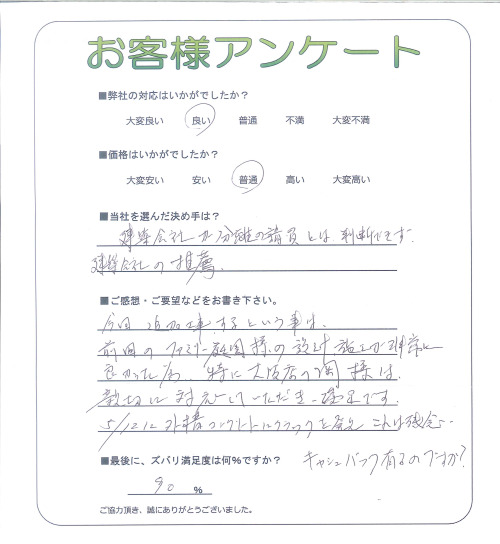 お客様アンケート
■弊社の対応はいかがでしたか？
大変良い 良い 普通 不満 大変不満
■価格はいかがでしたか？
大変安い 安い 普通 高い 大変高い
■当社を選んだ決め手は？
建築会社か分離の請負とは判断できず.
建築会社の推薦.
■ご感想・ご要望などをお書き下さい。
今回追加工事するという事は、
前回のファミリー庭園様の設計、施工が非常に
良かった 特に大阪店の 様は
親切に対応していただき 満足です.
5/12に外構コンクリートにクラックを発見 これは残念…
キャッシュバック有るのですか?
■最後に、ズバリ満足度は何%ですか？
90 %
ご協力頂き、誠にありがとうございました。